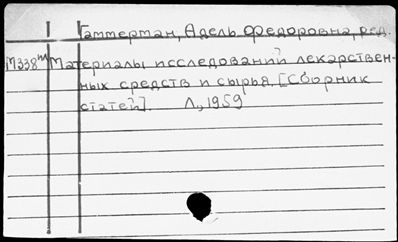 Гаммерман, Адель Федоровна, ред.
П338м Материалы исследований лекарствен-
ных средств и сырья. [Сборник
статей]. Л, 1959